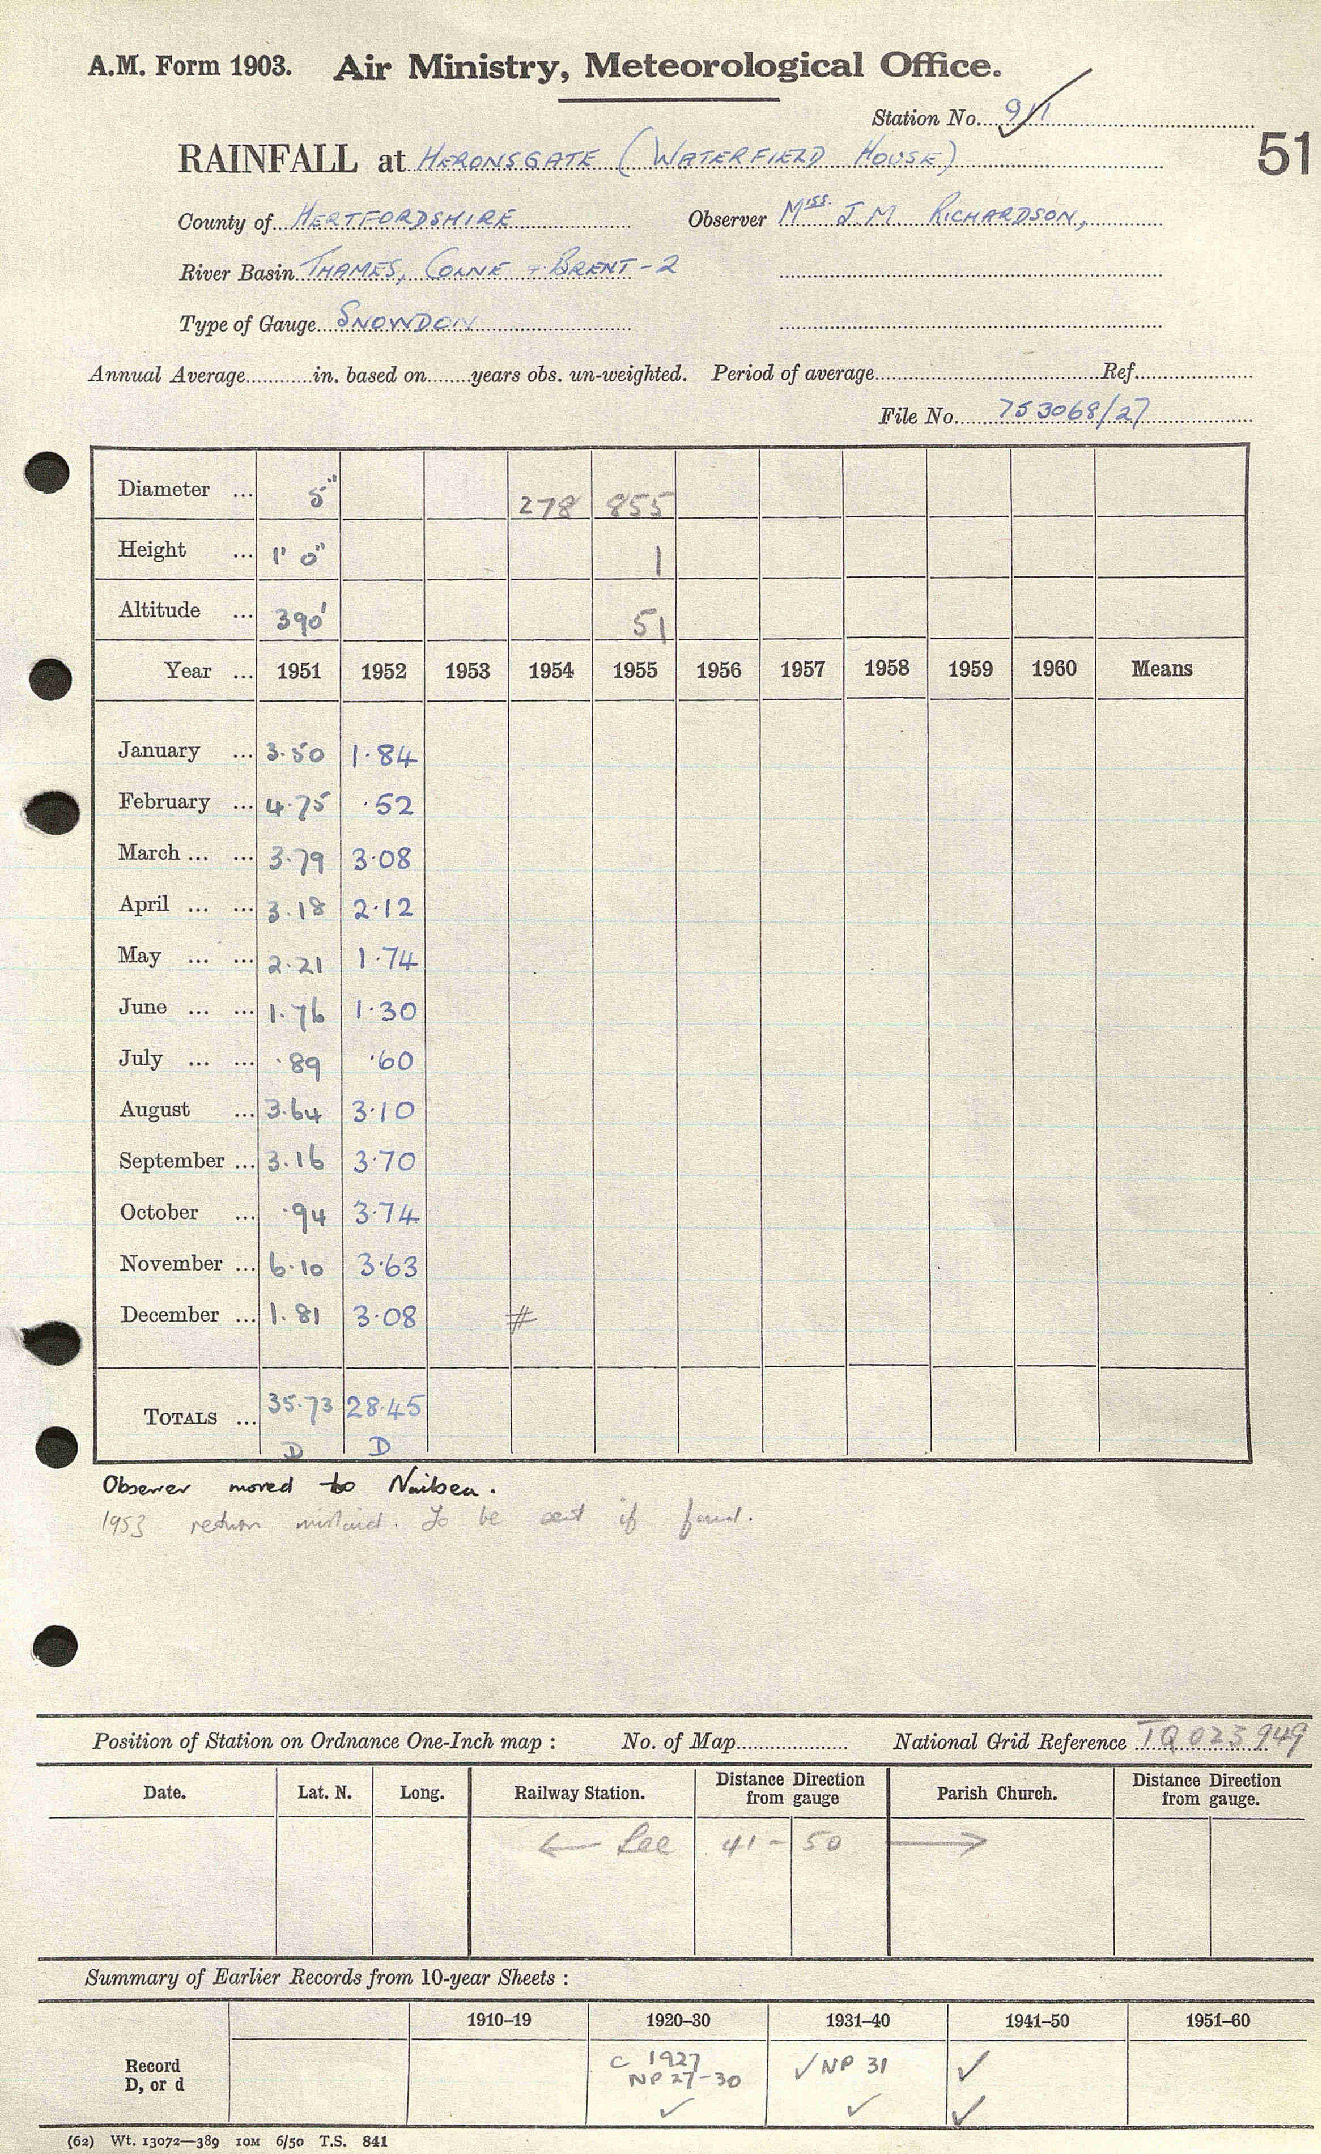 A.M. Form 1903. Air Ministry, Meteorological Office.
Station No. 9/11
51
RAINFALL at HERONSGATE (WATERFIELD HOUSE)
County of HERTFORDSHIRE Observer Miss. J.M. RICHARDSON,
River Basin THAMES, COLNE + BRENT - 2
Type of Gauge SNOWDON
Annual Average............in. based on........years obs. un-weighted. Period of average............Ref............
File No. 753068/27
Diameter ... 5" 278 855
Height ... 1' 0" 1
Altitude ... 390' 51
Year ... 1951 1952 1953 1954 1955 1956 1957 1958 1959 1960 Means
January ... 3.50 1.84
February ... 4.75 .52
March ... ... 3.79 3.08
April ... ... 3.18 2.12
May ... ... 2.21 1.74
June ... ... 1.76 1.30
July ... ... .89 .60
August ... 3.64 3.10
September ... 3.16 3.70
October ... .94 3.74
November ... 6.10 3.63
December ... 1.81 3.08 #
TOTALS ... 35.73 28.45
D D
Observer moved to Nailsea.
1953 return mislaid. To be sent if found.
Position of Station on Ordnance One-Inch map : No. of Map............ National Grid Reference TQ 023949
Date. Lat. N. Long. Railway Station. Distance Direction from gauge Parish Church. Distance Direction from gauge.
← See 41 - 50 →
Summary of Earlier Records from 10-year Sheets :
1910–19 1920–30 1931–40 1941–50 1951–60
Record D, or d
C 1927 ✓ NP 31 ✓
NP 27-30
✓ ✓ ✓
(62) Wt. 13072—389 10M 6/50 T.S. 841